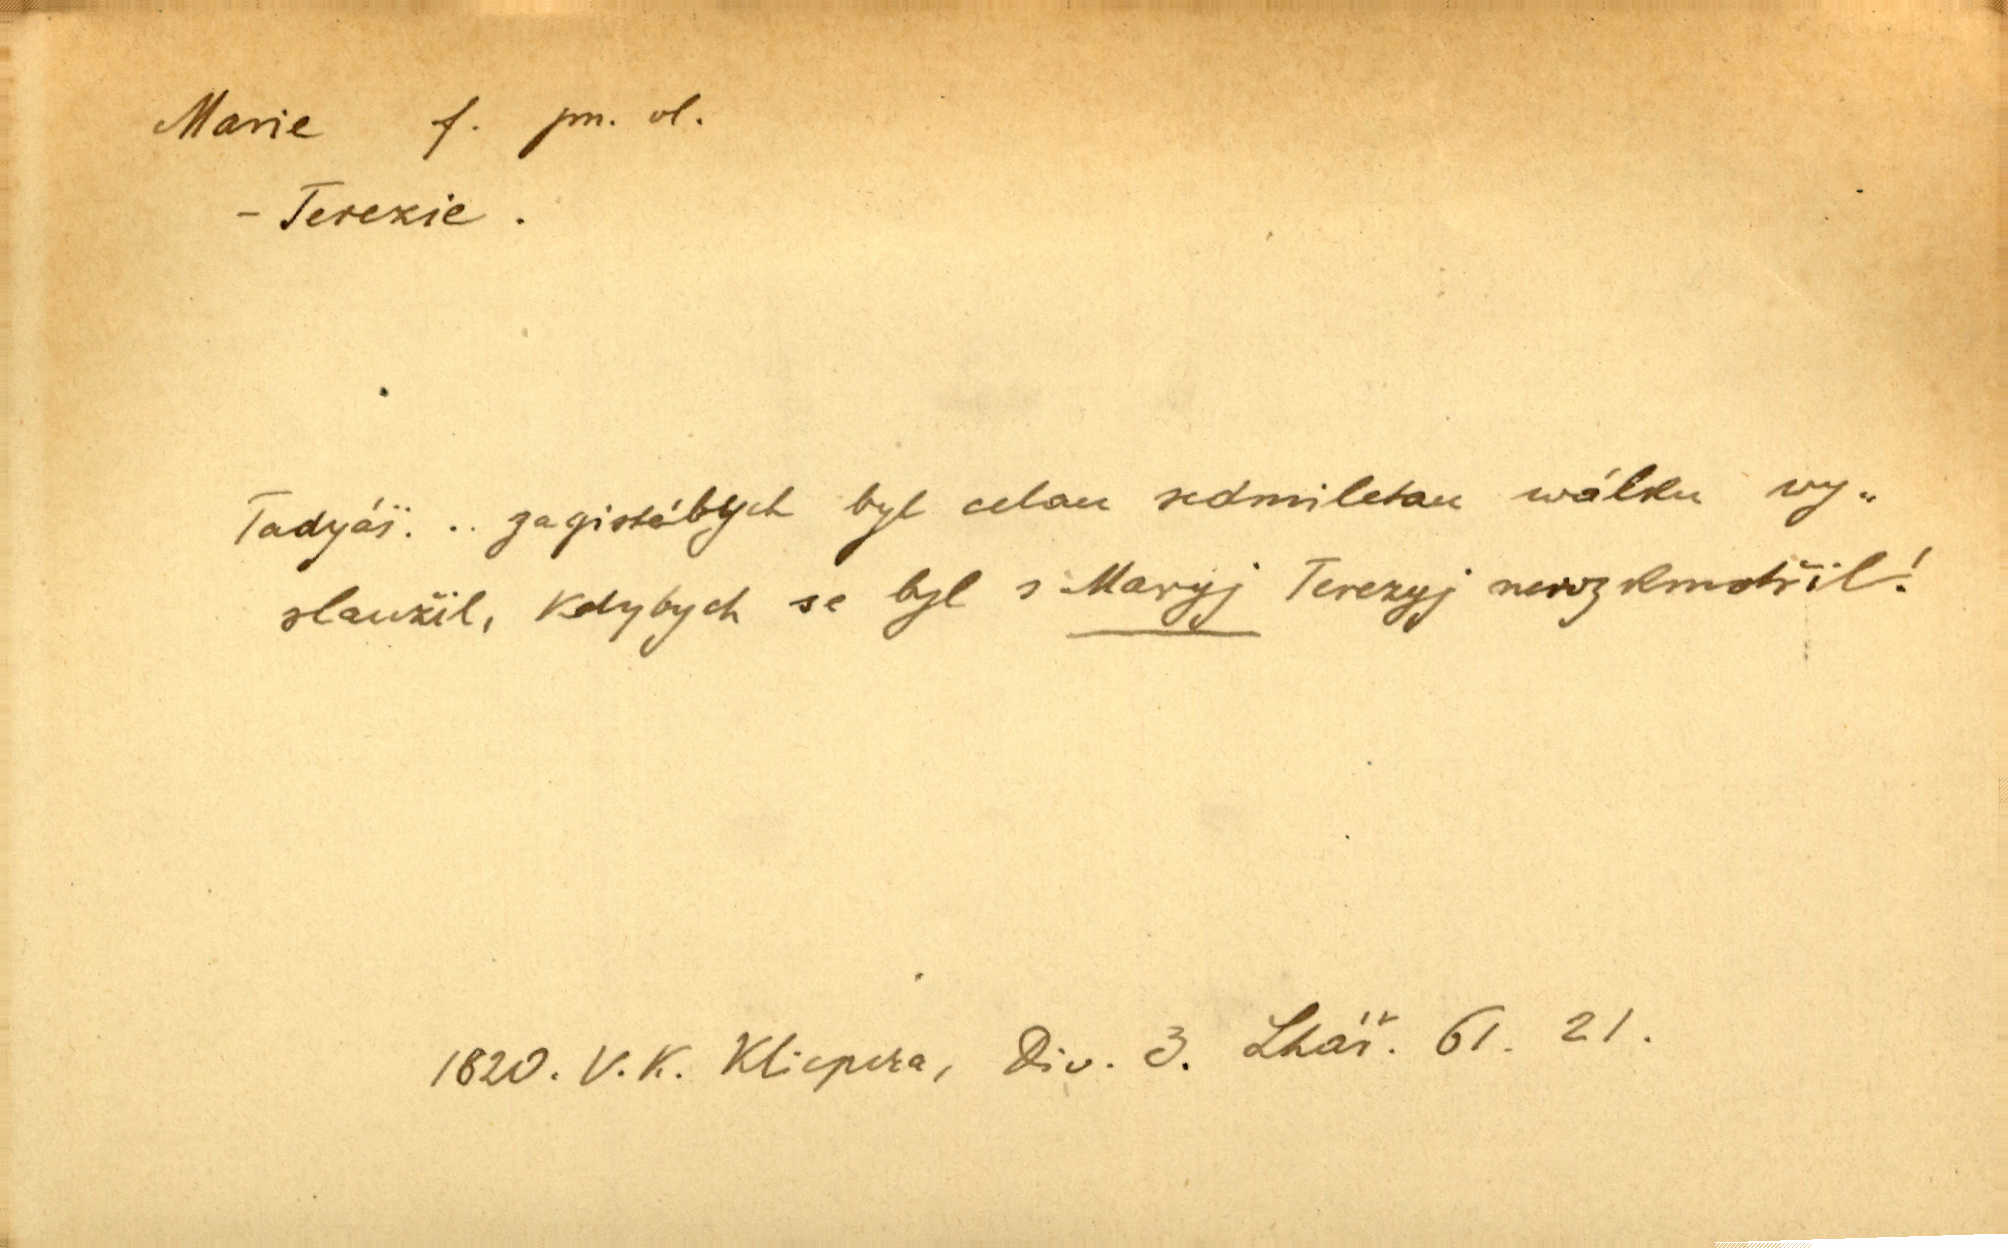 Marie f. jm. vl.
- Terezie.
Tadyáš. .. zagistébych byl celau sedmiletau wálku wy„
slaužil, kdybych se byl s Maryj Terezyj nerozkmotřil!
1820. V. K. Klicpera, Div. 3. Lhář. 61. 21.